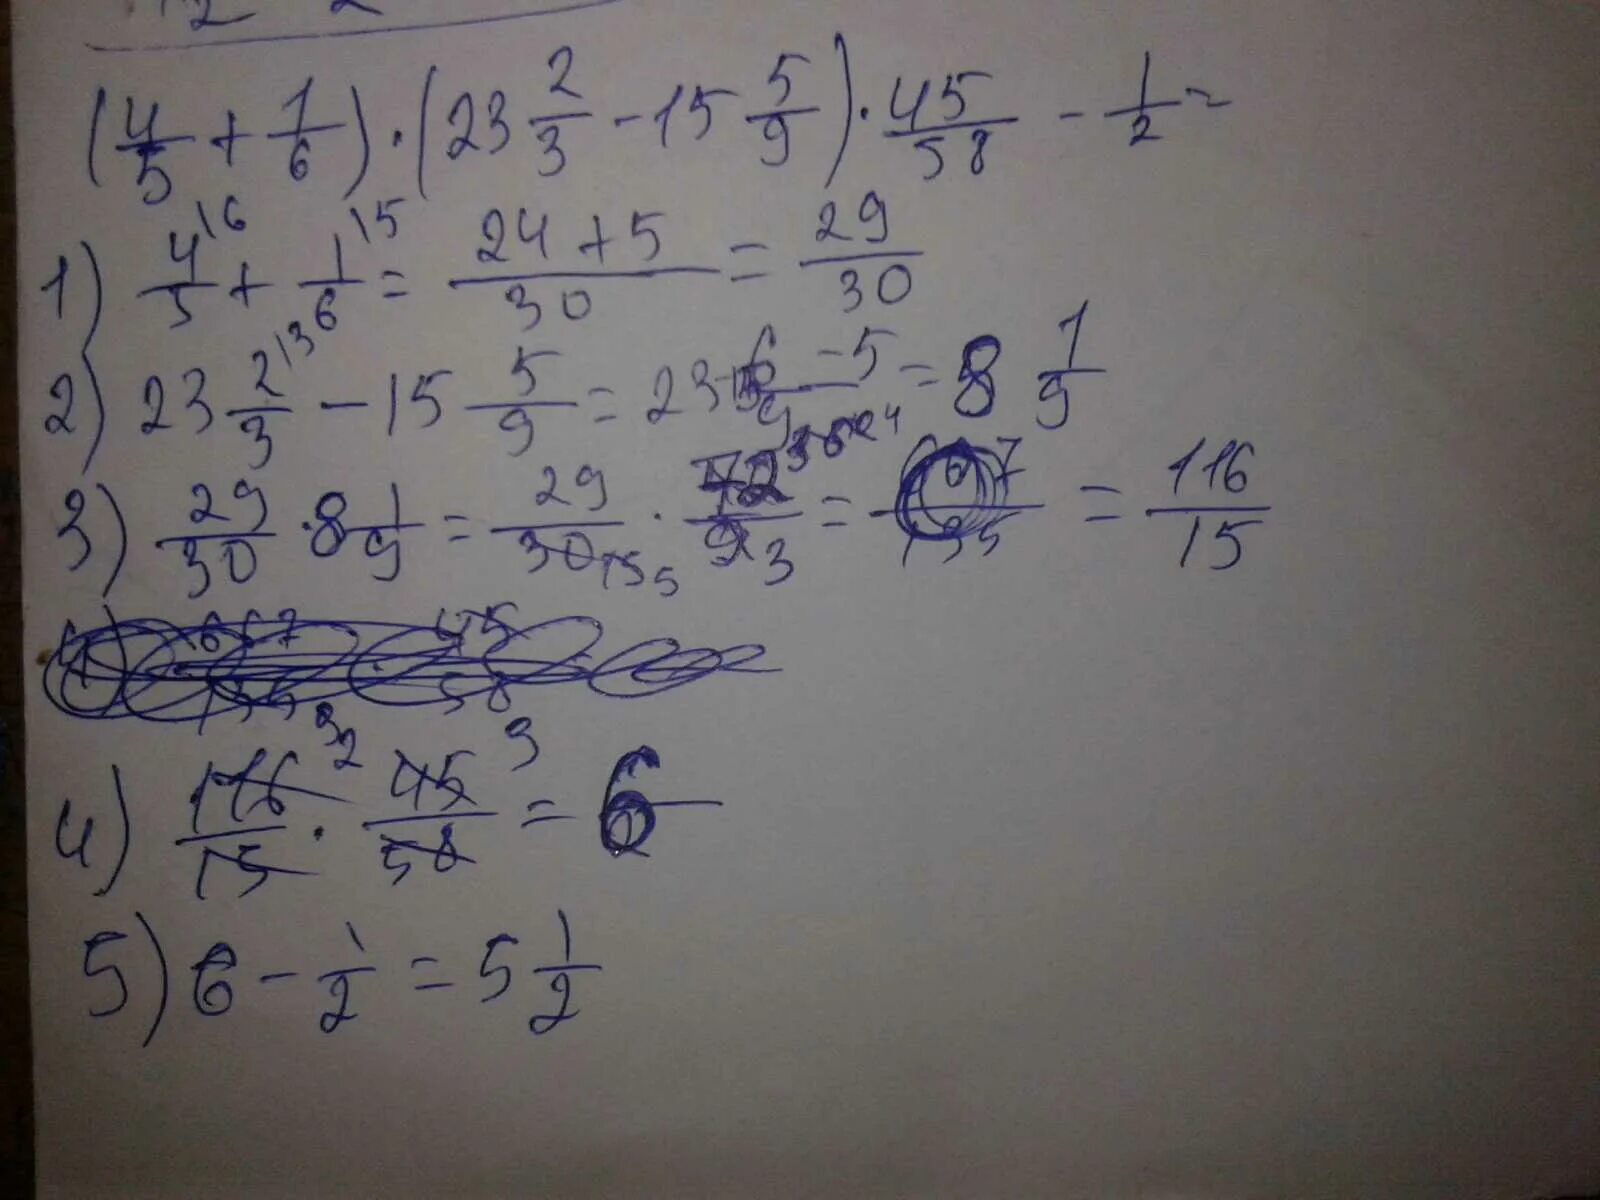 (4/5 + 1/6) · (23 2/3 - 15 5/9) · 45/58 - 1/2 =
1) 4/5 |6 + 1/6 |5 = 24+5/30 = 29/30
2) 23 2/3 |3 - 15 5/9 = 23-15 6-5/9 = 8 1/9
3) 29/30 · 8 1/9 = 29/30 · 72/9 = 116/15
4) 116/15 · 45/58 = 6
5) 6 - 1/2 = 5 1/2